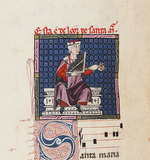 Esta é de loor de santa mª
Santa maria